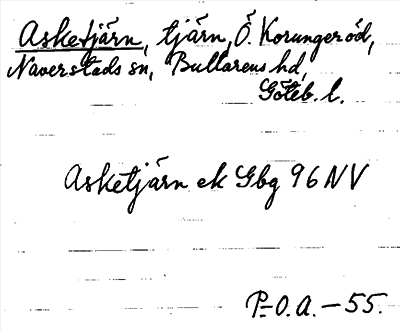 Asketjärn, tjärn, Ö. Korungeröd,
Naverstads sn, Bullarens hd,
Göteb. l.
Asketjärn ek Gbg 96 NV
P-O.A. - 55.